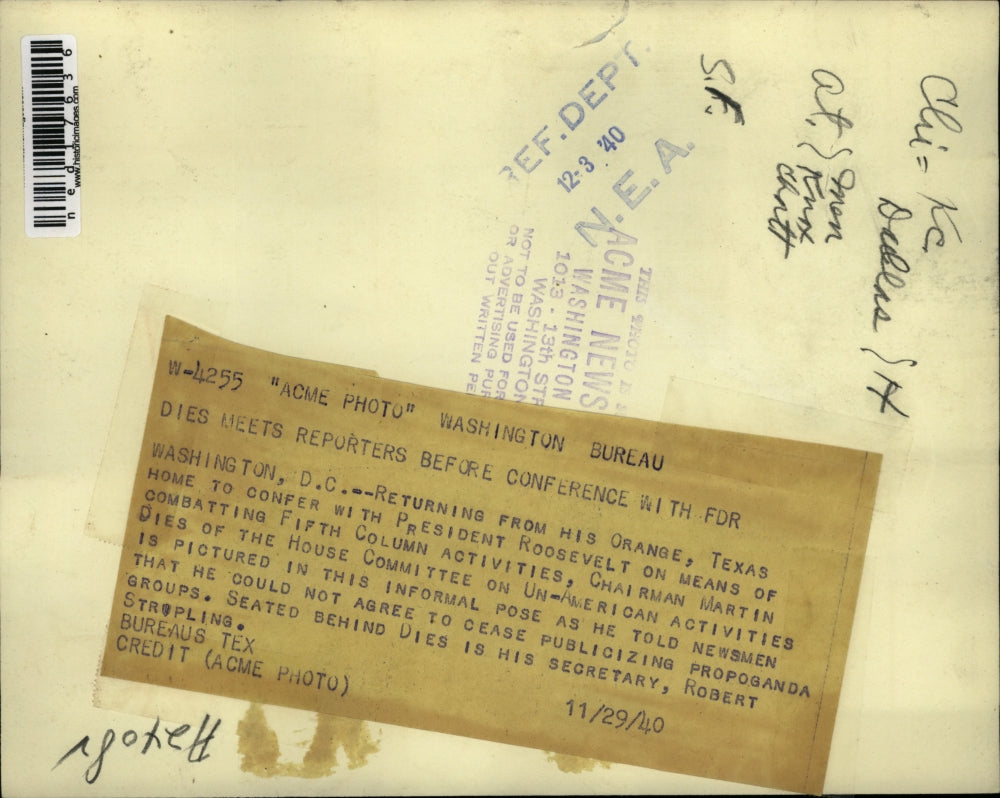 W-4255 "ACME PHOTO" WASHINGTON BUREAU
DIES MEETS REPORTERS BEFORE CONFERENCE WITH FDR
WASHINGTON, D.C.--RETURNING FROM HIS ORANGE, TEXAS
HOME TO CONFER WITH PRESIDENT ROOSEVELT ON MEANS OF
COMBATTING FIFTH COLUMN ACTIVITIES, CHAIRMAN MARTIN
DIES OF THE HOUSE COMMITTEE ON UN-AMERICAN ACTIVITIES
IS PICTURED IN THIS INFORMAL POSE AS HE TOLD NEWSMEN
THAT HE COULD NOT AGREE TO CEASE PUBLICIZING PROPOGANDA
GROUPS. SEATED BEHIND DIES IS HIS SECRETARY, ROBERT
STRIPLING.
BUREAUS TEX
CREDIT (ACME PHOTO) 11/29/40
EF. DEPT.
12-3 '40
N.E.A.
THIS PHOTO IS
ACME NEWS
WASHINGTON
1013 - 13th STR
WASHINGTON
NOT TO BE USED FOR
OR ADVERTISING PUR
OUT WRITTEN PE
S.F.
at. } mem
Knox
Chatt
Chi = Kc.
Dallas } H
ned17636
www.historicimages.com